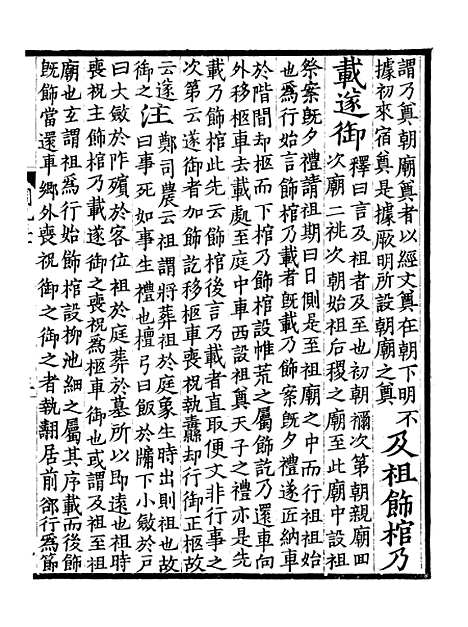 謂乃奠朝廟奠者以經文奠在朝下明不
據初來宿奠是據厥明所設朝廟之奠
及祖飾棺乃
載遂御
釋曰言及祖者及至也初朝禰次第朝親廟四
次廟二祧次朝始祖后稷之廟至此廟中設祖
祭案既夕禮請祖期曰日側是至祖廟之中而行祖祖始
也爲行始言飾棺乃載者既載乃飾案既夕禮遂匠納車
於階間却柩而下棺乃飾棺設帷荒之屬飾訖乃還車向
外移柩車去載處至庭中車西設祖奠天子之禮亦是先
載乃飾棺此先云飾棺後言乃載者直取便文非行事之
次第云遂御者加飾訖移柩車喪祝執纛却行御正柩故
云遂
御之
注
鄭司農云祖謂將葬祖於庭象生時出則祖也故
曰事死如事生禮也檀弓曰飯於牖下小斂於戶
曰大斂於阼殯於客位祖於庭葬於墓所以即遠也祖時
喪祝主飾棺乃載遂御之喪祝爲柩車御也或謂及祖至祖
廟也玄謂祖爲行始飾棺設柳池細之屬其序載而後飾
既飾當還車鄉外喪祝御之御之者執翿居前卻行爲節